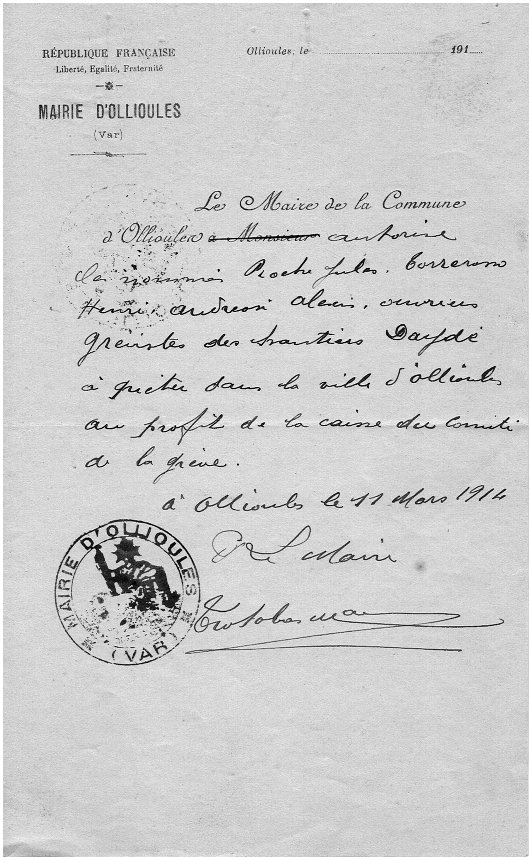 RÉPUBLIQUE FRANÇAISE
Liberté, Egalité, Fraternité
MAIRIE D'OLLIOULES
(Var)
Ollioules, le 191
Le Maire de la Commune
d'Ollioules à Monsieur autorise
les nommés Roche Jules,
Henri, Andreoni Alexis, ouvriers
Grevistes des chantiers Daydé
à quêter dans la ville d'Ollioules
au profit de la caisse du Comité
de la grève.
à Ollioules le 11 Mars 1914
Le Maire
MAIRIE D'OLLIOULES
(VAR)